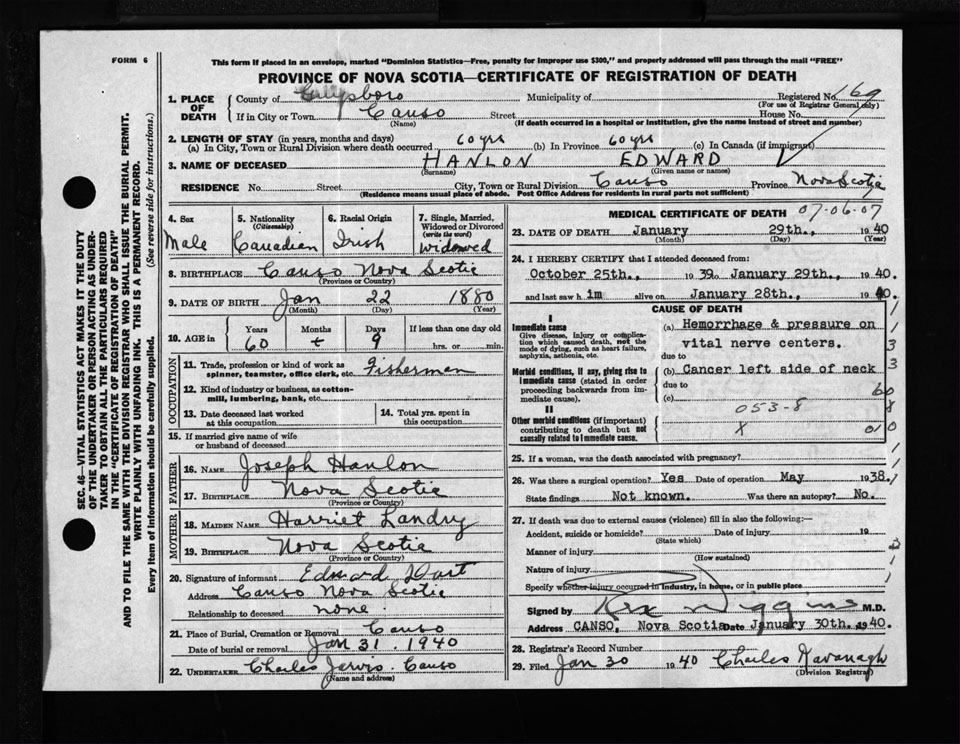 FORM 6
This form if placed in an envelope, marked "Dominion Statistics—Free, penalty for improper use $300," and properly addressed will pass through the mail "FREE"
PROVINCE OF NOVA SCOTIA—CERTIFICATE OF REGISTRATION OF DEATH
SEC. 46—VITAL STATISTICS ACT MAKES IT THE DUTY
OF THE UNDERTAKER OR PERSON ACTING AS UNDER-
TAKER TO OBTAIN ALL THE PARTICULARS REQUIRED
IN THE "CERTIFICATE OF REGISTRATION OF DEATH"
AND TO FILE THE SAME WITH THE DIVISION REGISTRAR WHO SHALL ISSUE THE BURIAL PERMIT.
WRITE PLAINLY WITH UNFADING INK. THIS IS A PERMANENT RECORD.
Every item of Information should be carefully supplied. (See reverse side for instructions.)
1. PLACE OF DEATH County of Municipality of Registered No. 169
(For use of Registrar General only)
If in City or Town Canso Street House No.
(Name) (If death occurred in a hospital or institution, give the name instead of street and number)
2. LENGTH OF STAY (in years, months and days)
(a) In City, Town or Rural Division where death occurred 60 yrs (b) In Province 60 yrs (c) In Canada (if immigrant)
3. NAME OF DECEASED HANLON EDWARD
(Surname) (Given name or names)
RESIDENCE No. Street City, Town or Rural Division Canso Province Nova Scotia
(Residence means usual place of abode. Post Office Address for residents in rural parts not sufficient)
4. Sex Male
5. Nationality (Citizenship) Canadian
6. Racial Origin Irish
7. Single, Married, Widowed or Divorced (write the word) Widowed
8. BIRTHPLACE Canso Nova Scotia
(Province or Country)
9. DATE OF BIRTH Jan 22 1880
(Month) (Day) (Year)
10. AGE in Years 60 Months Days 9 If less than one day old hrs. or min.
OCCUPATION
11. Trade, profession or kind of work as spinner, teamster, office clerk, etc. Fisherman
12. Kind of industry or business, as cotton-mill, lumbering, bank, etc.
13. Date deceased last worked at this occupation
14. Total yrs. spent in this occupation
15. If married give name of wife or husband of deceased
FATHER
16. NAME Joseph Hanlon
17. BIRTHPLACE Nova Scotia
(Province or Country)
MOTHER
18. MAIDEN NAME Harriet Landry
19. BIRTHPLACE Nova Scotia
(Province or Country)
20. Signature of informant Edward Hart
Address Canso Nova Scotia
Relationship to deceased none
21. Place of Burial, Cremation or Removal Canso
Date of burial or removal Jan 31. 1940
22. UNDERTAKER Charles Jarvis. Canso
(Name and address)
MEDICAL CERTIFICATE OF DEATH 07-06-07
23. DATE OF DEATH January 29th., 1940
(Month) (Day) (Year)
24. I HEREBY CERTIFY that I attended deceased from:
October 25th., 1939 to January 29th., 1940.
and last saw him alive on January 28th., 1940.
CAUSE OF DEATH
I
Immediate cause
Give disease, injury or complication which caused death, not the mode of dying, such as heart failure, asphyxia, asthenia, etc.
(a) Hemorrhage & pressure on
vital nerve centers.
due to
Morbid conditions, if any, giving rise to immediate cause (stated in order proceeding backwards from immediate cause).
(b) Cancer left side of neck
due to
(c)
II
Other morbid conditions (if important) contributing to death but not causally related to immediate cause.
053-8
X
25. If a woman, was the death associated with pregnancy?
26. Was there a surgical operation? Yes Date of operation May 1938.
State findings Not known. Was there an autopsy? No.
27. If death was due to external causes (violence) fill in also the following:—
Accident, suicide or homicide? Date of injury 19
(State which)
Manner of injury
(How sustained)
Nature of injury
Specify whether injury occurred in industry, in home, or in public place
Signed by M.D.
Address CANSO, Nova Scotia Date January 30th. 1940.
28. Registrar's Record Number
29. Filed Jan 30 1940 Charles Kavanagh
(Division Registrar)